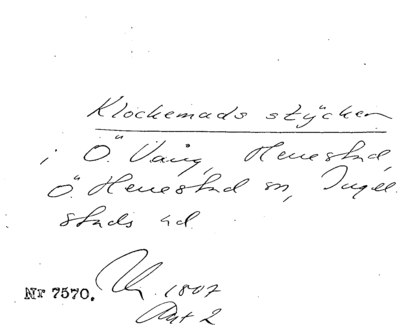 Klockemads stÿcken
i Ö. Vång, Herrestad,
Ö. Herrestad sn, Ingel-
stads hd.
Nr 7570. 1807
Akt 2